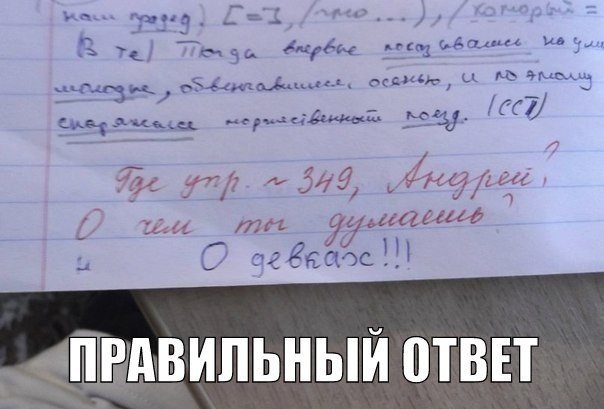 наш прадед), [=], (что...), (который =
(В те) Тогда впервые показывались на ули
молодые, обвенчавшиеся осенью, и поэтому
снаряжался торжественный поезд. (ССП)
Где упр. ~ 349, Андрей?
О чем ты думаешь?
О девках!!!
ПРАВИЛЬНЫЙ ОТВЕТ